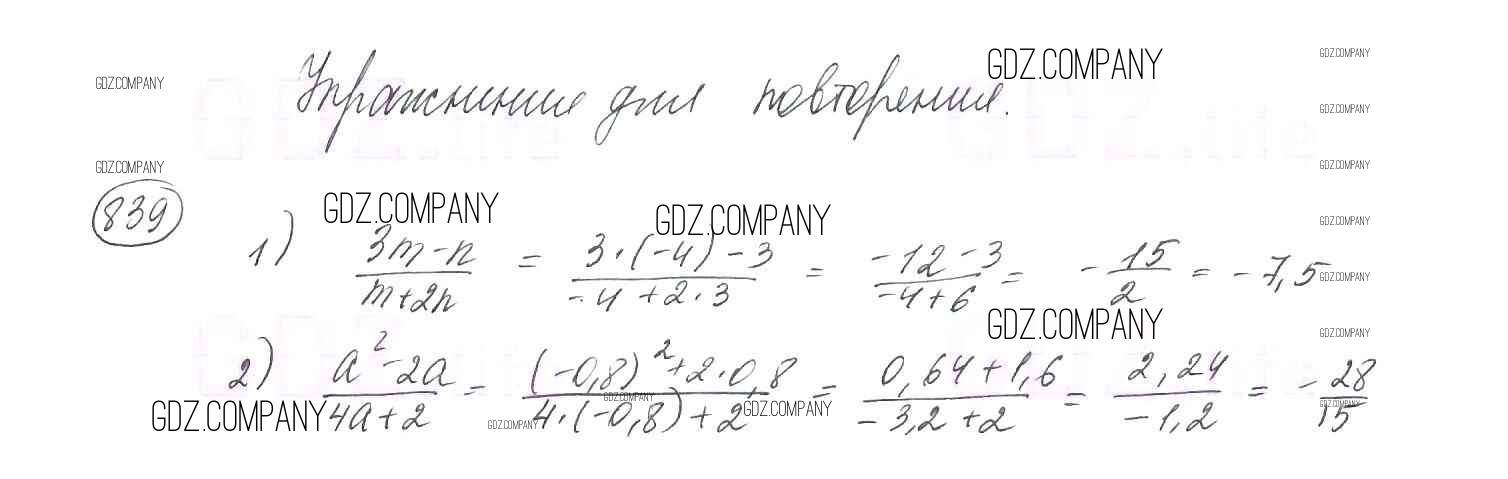 Упражнения для повторения.
GDZ.COMPANY
GDZ.COMPANY
GDZ.COMPANY
GDZ.COMPANY
GDZ.COMPANY
GDZ.COMPANY
839
GDZ.COMPANY
GDZ.COMPANY
GDZ.COMPANY
1) (3m-n)/(m+2n) = (3·(-4)-3)/(-4+2·3) = (-12-3)/(-4+6) = -15/2 = -7,5
GDZ.COMPANY
GDZ.COMPANY
GDZ.COMPANY
2) (a²-2a)/(4a+2) = ((-0,8)²+2·0,8)/(4·(-0,8)+2) = (0,64+1,6)/(-3,2+2) = 2,24/(-1,2) = -28/15
GDZ.COMPANY
GDZ.COMPANY
GDZ.COMPANY
GDZ.COMPANY
GDZ.COMPANY